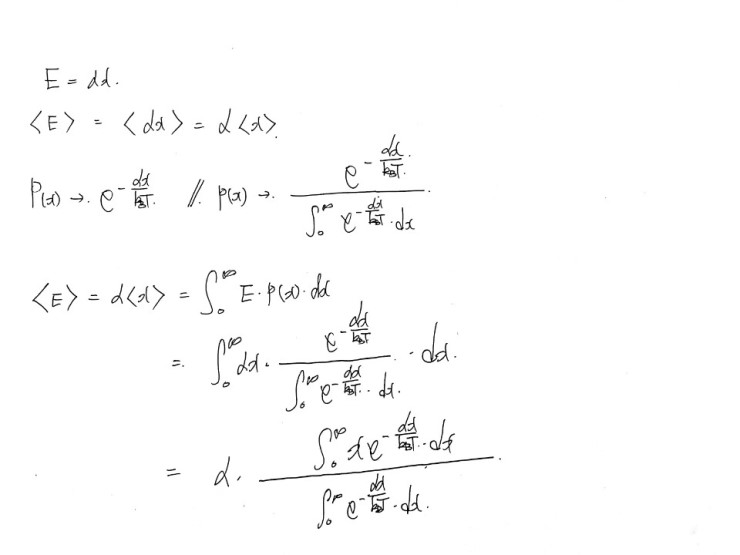 E = αx.
<E> = <αx> = α<x>.
P(x) → e^{-\frac{αx}{k_BT}} // p(x) → \frac{e^{-\frac{αx}{k_BT}}}{\int_0^∞ e^{-\frac{αx}{k_BT}} · dx}
<E> = α<x> = \int_0^∞ E · p(x) · dx
= \int_0^∞ αx · \frac{e^{-\frac{αx}{k_BT}}}{\int_0^∞ e^{-\frac{αx}{k_BT}} · dx} · dx.
= α · \frac{\int_0^∞ x e^{-\frac{αx}{k_BT}} · dx}{\int_0^∞ e^{-\frac{αx}{k_BT}} · dx}.